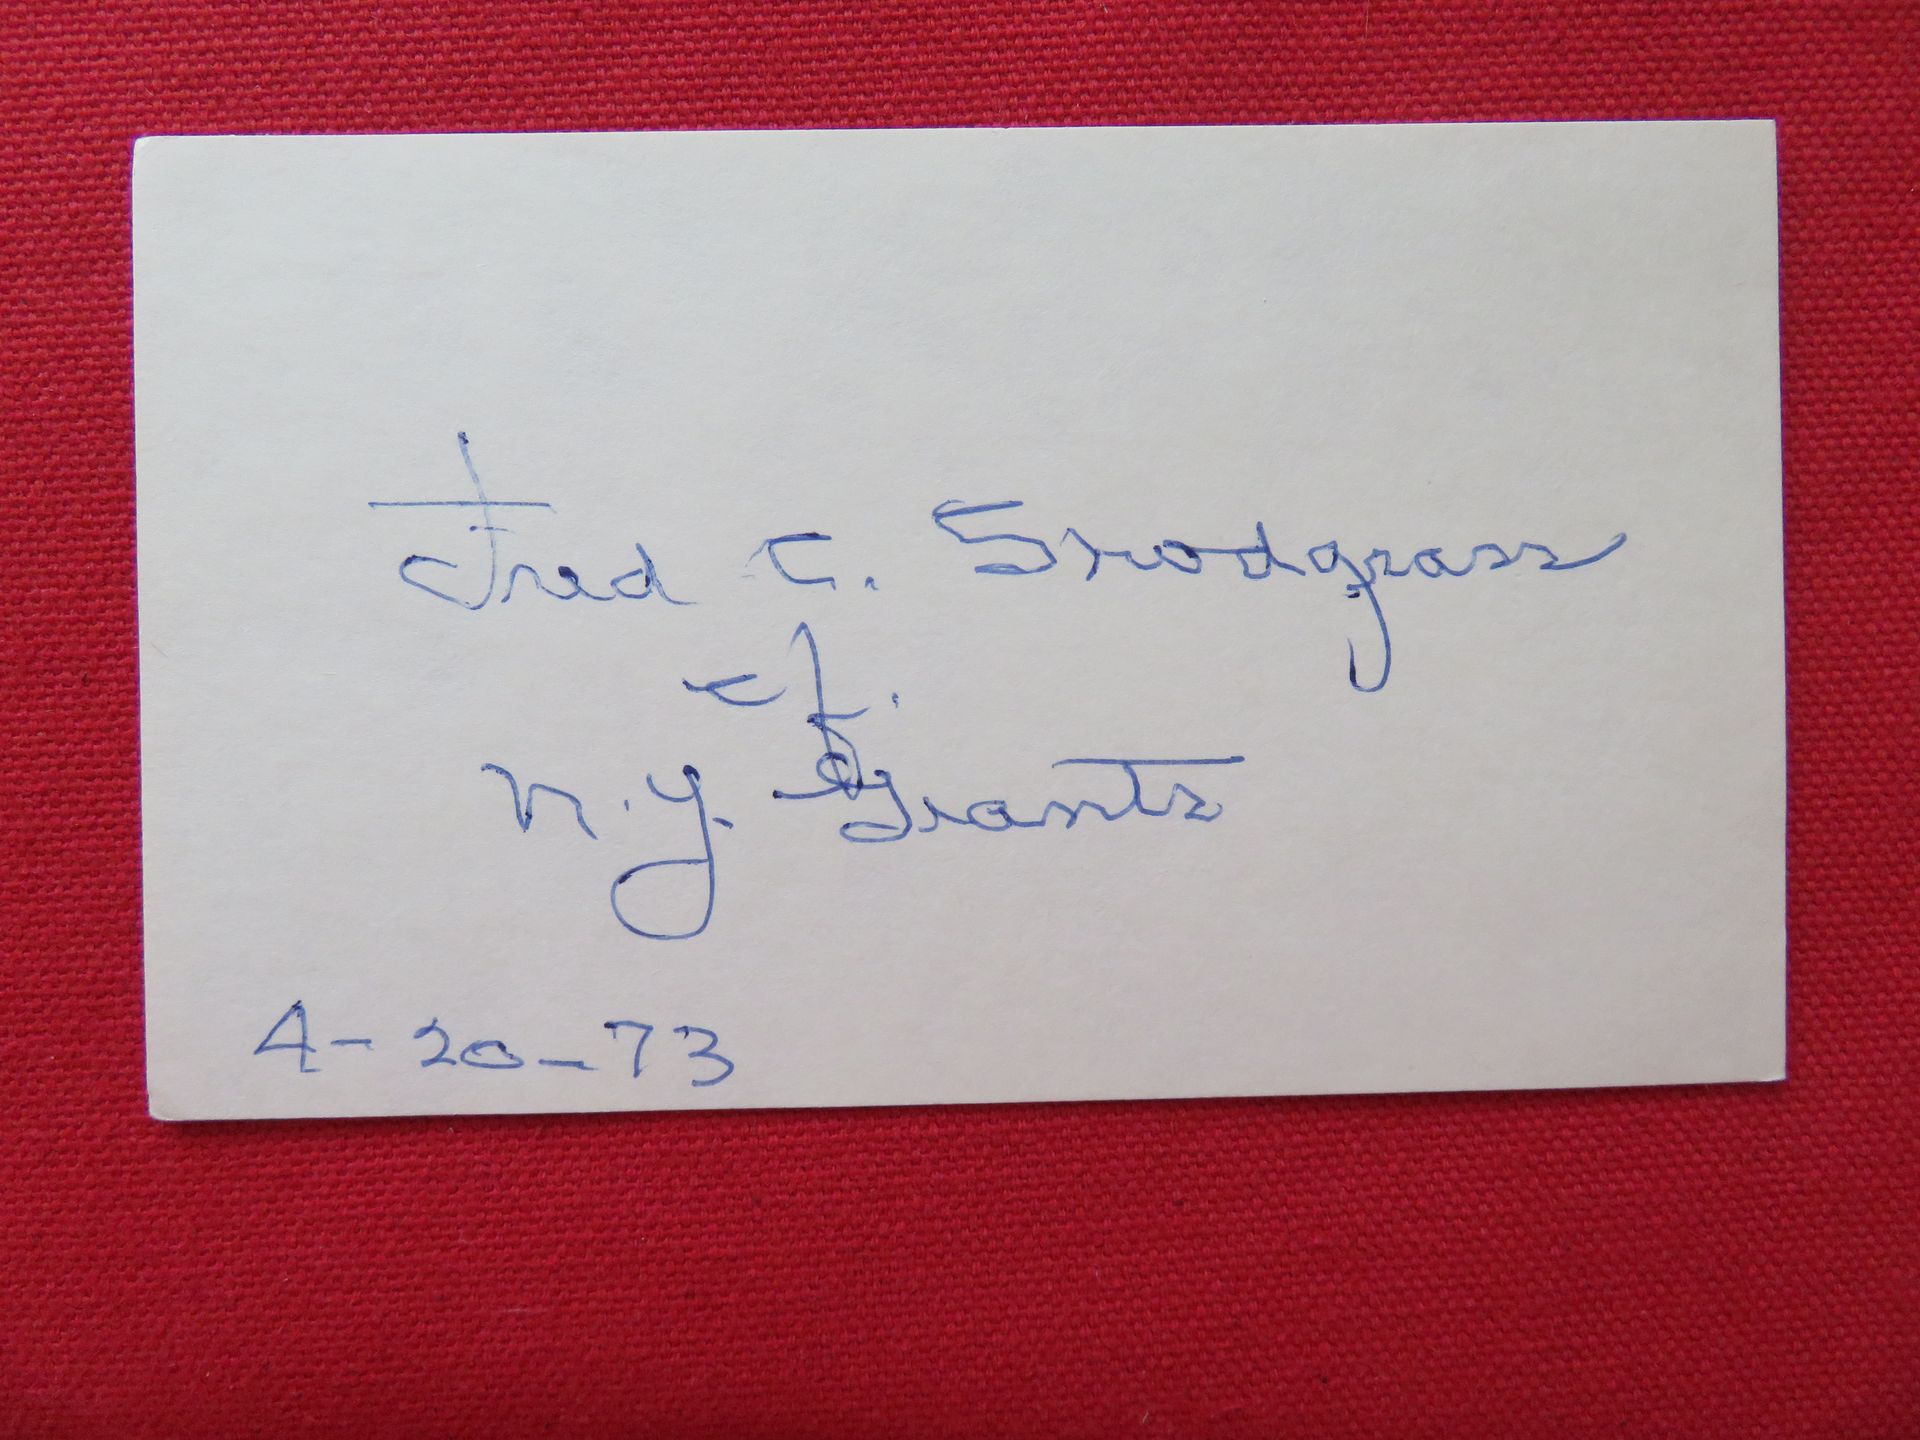 Fred C. Snodgrass
C.F.
N.Y. Giants
4-20-73